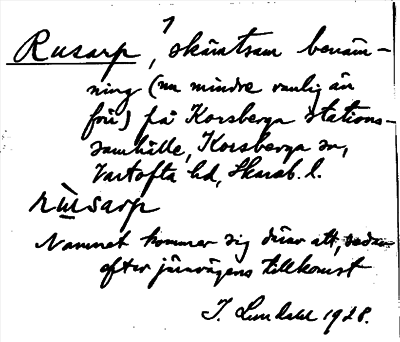 Rusarp, skämtsam benäm-
ning (nu mindre vanlig än
förr) på Korsberga stations-
samhälle, Korsberga sn,
Vartofta hd, Skarab. l.
rùsarp
Namnet kommer sig därav att, sedan
efter järnvägens tillkomst
J. Lundahl 1928.